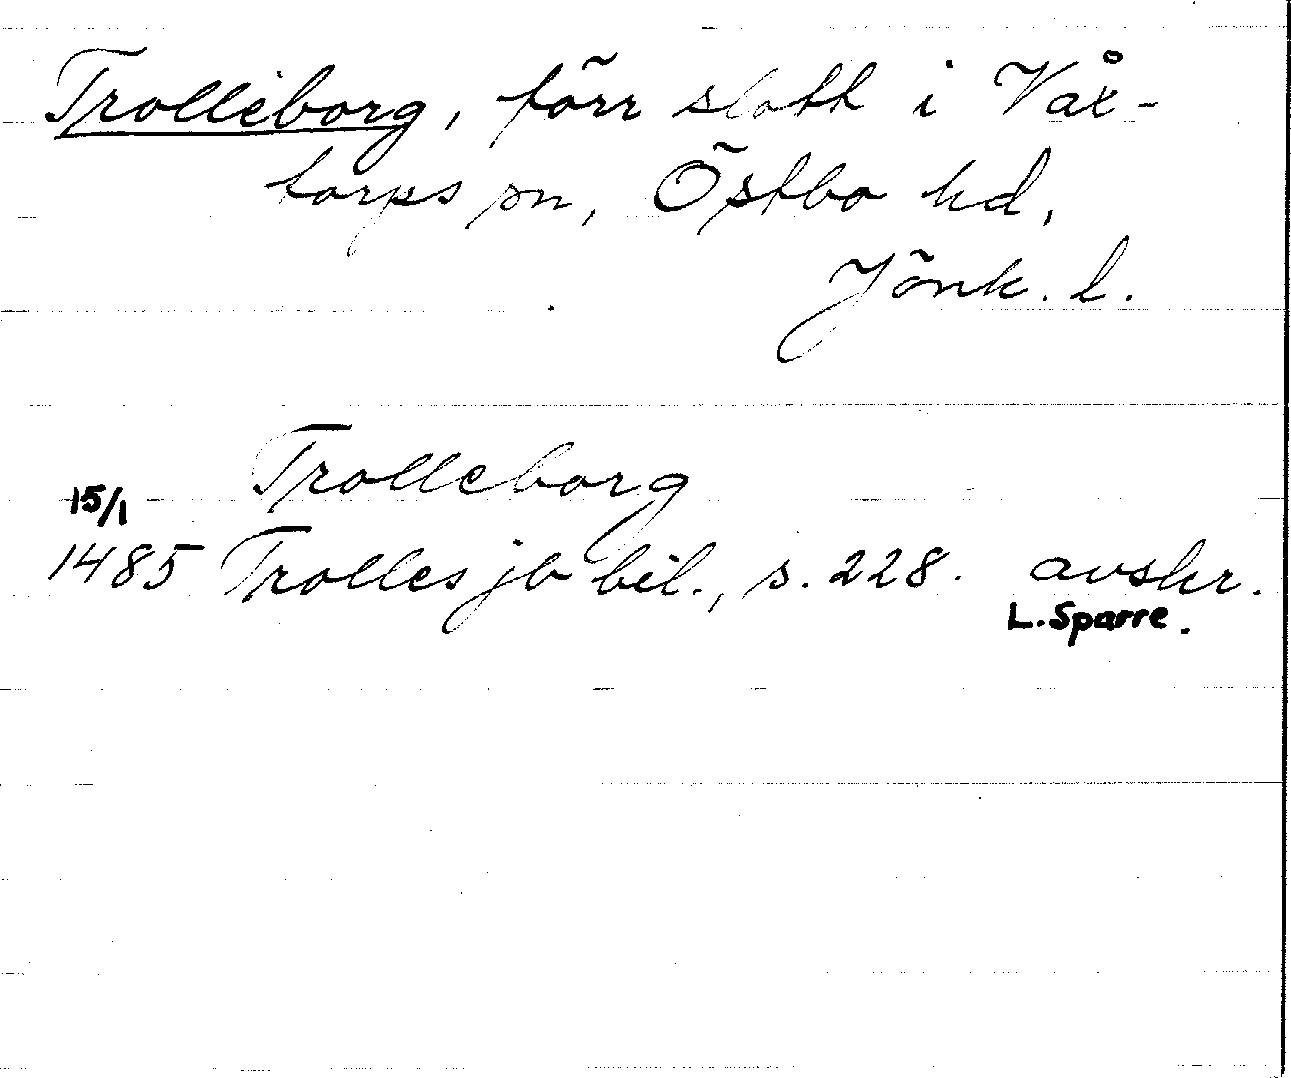 Trolleborg, förr slott i Våx-
torps sn, Östbo hd,
Jönk. l.
Trolleborg
15/1
1485 Trolles jb bil., s. 228. avskr.
L. Sparre.